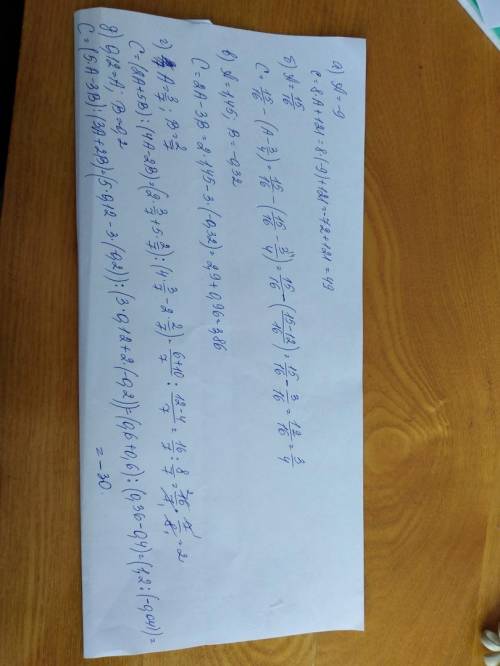 а) A = -9
C = 8·A+121 = 8·(-9)+121 = -72+121 = 49
б) A = 15/16
C = 15/16 - (A - 3/4) = 15/16 - (15/16 - 3/4) = 15/16 - (15-12/16) = 15/16 - 3/16 = 12/16 = 3/4
в) A = 1,45; B = -0,32
C = 2A - 3B = 2·1,45 - 3·(-0,32) = 2,9 + 0,96 = 3,86
г) A = 3/7; B = 2/7
C = (2A+5B) : (4A-2B) = (2·3/7 + 5·2/7) : (4·3/7 - 2·2/7) = 6+10/7 : 12-4/7 = 16/7 : 8/7 = 16/7 · 7/8 = 2
д) 0,12 = A; B = -0,2
C = (5A-3B) : (3A+2B) = (5·0,12 - 3·(-0,2)) : (3·0,12 + 2·(-0,2)) = (0,6+0,6) : (0,36-0,4) = (1,2 : (-0,04)) =
= -30